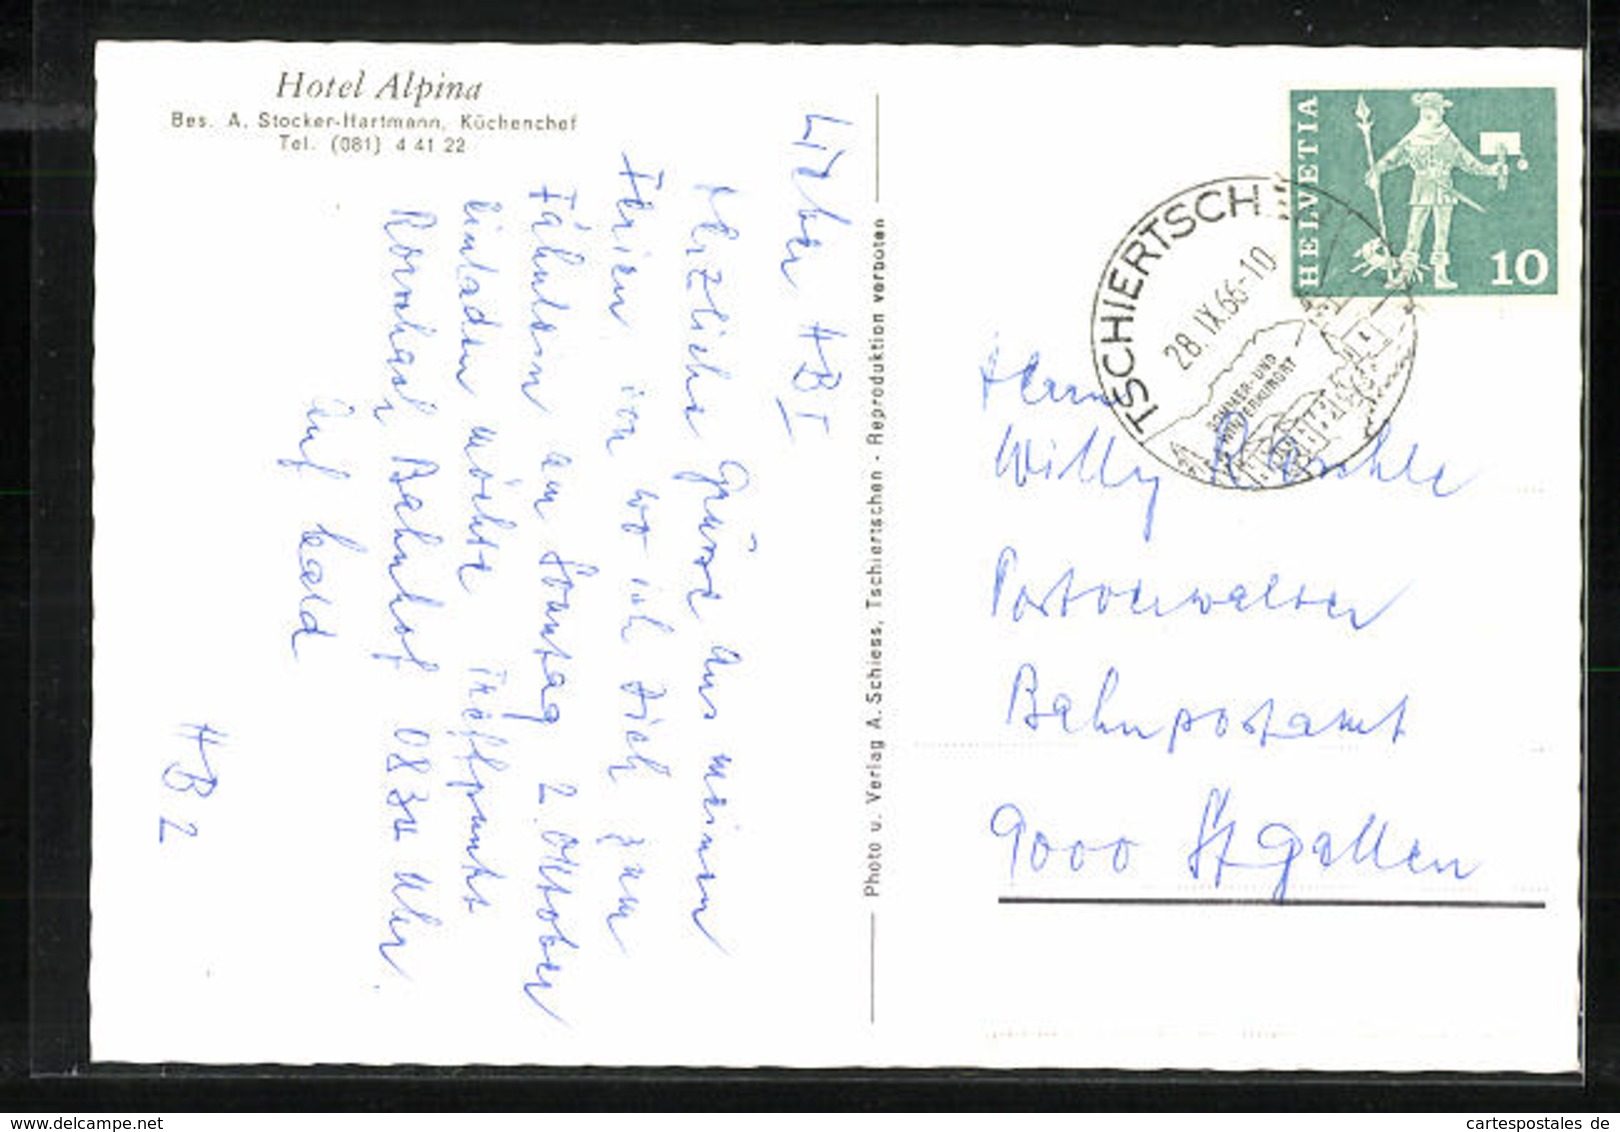 Hotel Alpina
Bes. A. Stocker-Hartmann, Küchenchef
Tel. (081) 4 41 22
Lieber HB I
Herzliche Grüsse aus meinen
Ferien von wo ich Dich zum
Fähnlein am Sonntag 2. Oktober
einladen möchte Treffpunkt
Rorschach Bahnhof 08 30 Uhr.
Auf bald
HB 2
Photo u. Verlag A. Schiess, Tschiertschen - Reproduktion verboten
HELVETIA
10
TSCHIERTSCH
28.IX.66-10
SOMMER-UND
WINTERKURORT
Herrn
Willy
Postverwalter
Bahnpostamt
9000 St Gallen
cartespostales de